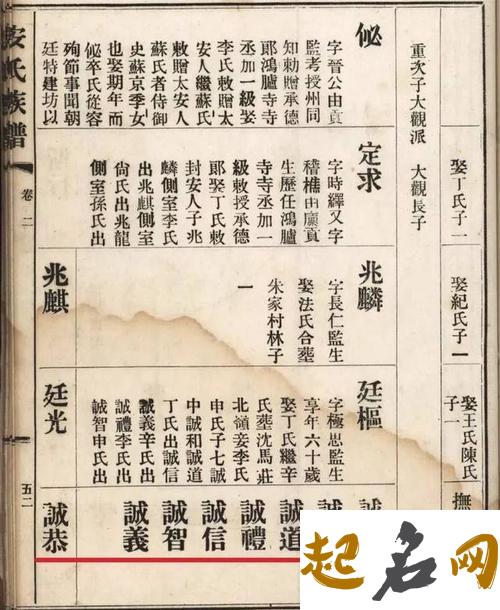 娶丁氏子二
娶紀氏子一
娶王氏陳氏
子一
撫
重次子大觀派 大觀長子
佖
字晉公由貢
監考授州同
知勅贈承德
郎鴻臚寺寺
丞加一級娶
李氏敕贈太
安人繼蘇氏
敕贈太安人
蘇氏者侍御
史蘇京季女
也娶期年而
佖卒氏從容
殉節事聞朝
廷特建坊以
定求
字時繹又字
稽樵由廩貢
生歷任鴻臚
寺寺丞加一
級敕授承德
郎娶丁氏敕
封安人子兆
麟側室李氏
出兆麒側室
尚氏出兆龍
側室孫氏出
兆麟
字長仁監生
娶法氏合葬
朱家村林子
一
兆麒
廷樞
字極思監生
享年六十歲
娶丁氏繼辛
氏葬沈馬莊
北嶺妾李氏
申氏子七誠
中誠和誠道
丁氏出誠信
誠義辛氏出
誠禮李氏出
誠智申氏出
廷光
誠
誠
誠道
誠禮
誠信
誠智
誠義
誠恭
安氏族譜
卷二
五二
起名网